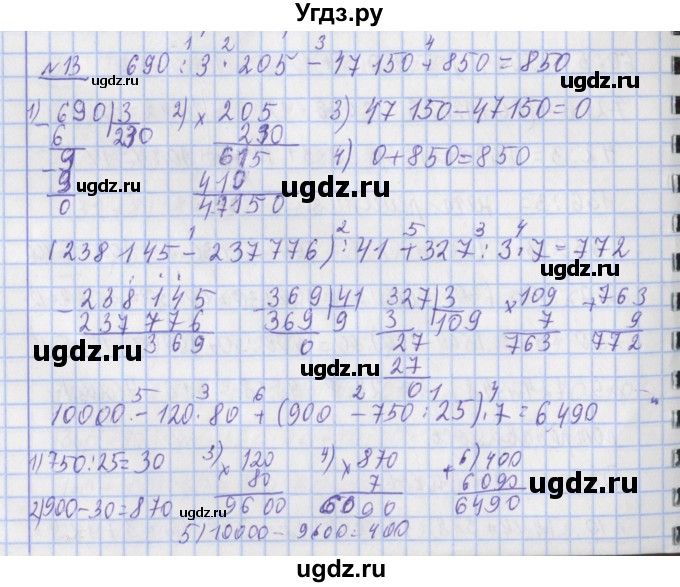 Угдз.ру
№13 690 : 3 · 205 − 47 150 + 850 = 850
1) 690 | 3 2) × 205 3) 47 150 − 47150 = 0
6 230 230 4) 0 + 850 = 850
9 615
9 410
0 47150
(238 145 − 237 776) : 41 + 327 : 3 · 7 = 772
− 238 145 − 369 | 41 327 | 3 × 109 + 763
237 776 369 9 3 109 7 9
369 0 27 763 772
27
0
10000 − 120 · 80 + (900 − 750 : 25) · 7 = 6490
1) 750 : 25 = 30 3) × 120 4) × 870 6) + 400
80 7 6090
2) 900 − 30 = 870 9600 6090 6490
5) 10000 − 9600 = 400
ugdz.ru
ugdz.ru
ugdz.ru
ugdz.ru
ugdz.ru
ugdz.ru
ugdz.ru
ugdz.ru
ugdz.ru
ugdz.ru
ugdz.ru
ugdz.ru
ugdz.ru
ugdz.ru